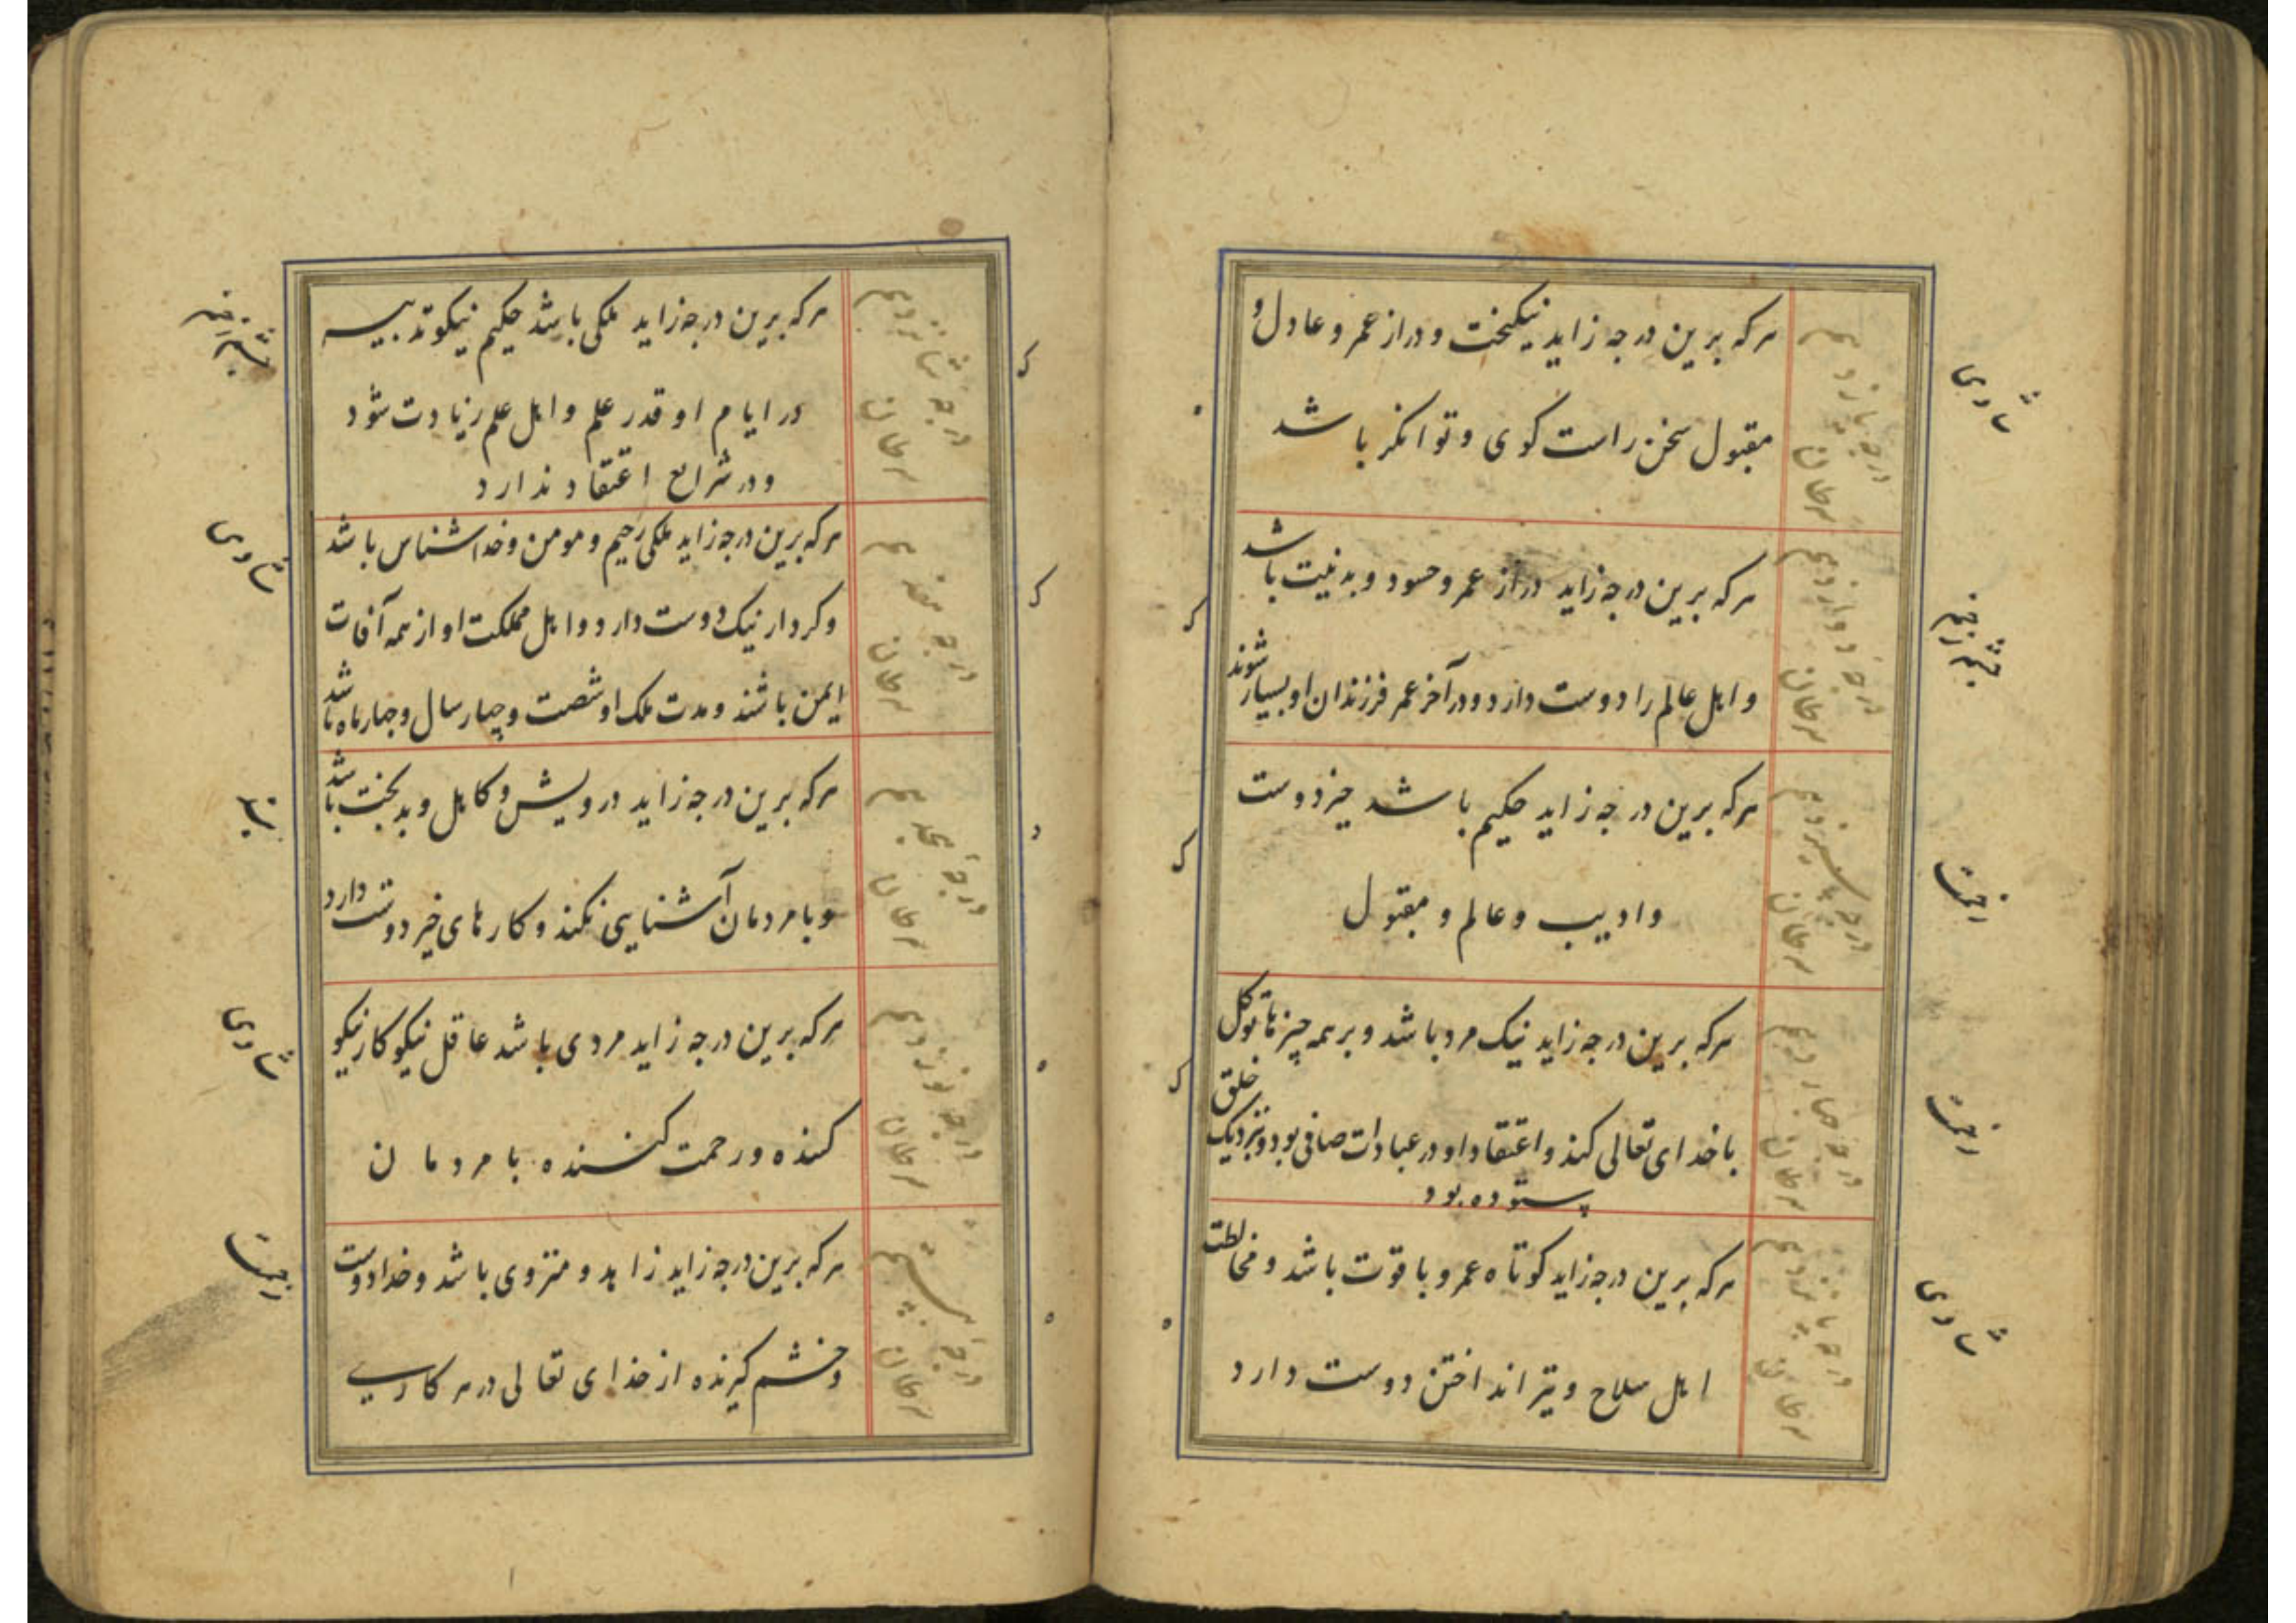 درجه یازدهم
سرطان
هرکه برین درجه زاید نیکبخت و دراز عمر و عادل و
مقبول سخن راست کوی و توانکر باشد
درجه دوازدهم
سرطان
هرکه برین درجه زاید دراز عمر و حسود و بد نیت باشد
و اهل عالم را دوست دارد و در آخر عمر فرزندان او بسیار شوند
درجه سیزدهم
سرطان
هرکه برین درجه زاید حکیم باشد خیر دوست
و ادیب و عالم و مقبول
درجه چهاردهم
سرطان
هرکه برین درجه زاید نیک مرد باشد و بر همه چیزها توکل
با خدای تعالی کند و اعتقاد او در عبادات صافی بود و نزدیک خلق
ستوده بود
درجه پانزدهم
سرطان
هرکه برین درجه زاید کوتاه عمر و با قوت باشد و مخالطت
اهل سلاح و تیر انداختن دوست دارد
درجه شانزدهم
سرطان
هرکه برین درجه زاید ملکی باشد حکیم نیکو تدبیر
در ایام او قدر علم و اهل علم زیادت شود
و در شرایع اعتقاد ندارد
درجه هفدهم
سرطان
هرکه برین درجه زاید ملکی رحیم و مومن و خدا شناس باشد
و کردار نیک دوست دارد و اهل مملکت او از همه آفات
ایمن باشند و مدت ملک او شصت و چهار سال و چهار ماه باشد
درجه هجدهم
سرطان
هرکه برین درجه زاید درویش و کاهل و بدبخت باشد
و با مردمان آشنایی نکند و کارهای خیر دوست دارد
درجه نوزدهم
سرطان
هرکه برین درجه زاید مردی باشد عاقل نیکو کار نیکو
کننده و رحمت کننده با مردمان
درجه بیستم
سرطان
هرکه برین درجه زاید زاهد و منزوی باشد و خدا دوست
و خشم کیرنده از خدای تعالی در هر کاری